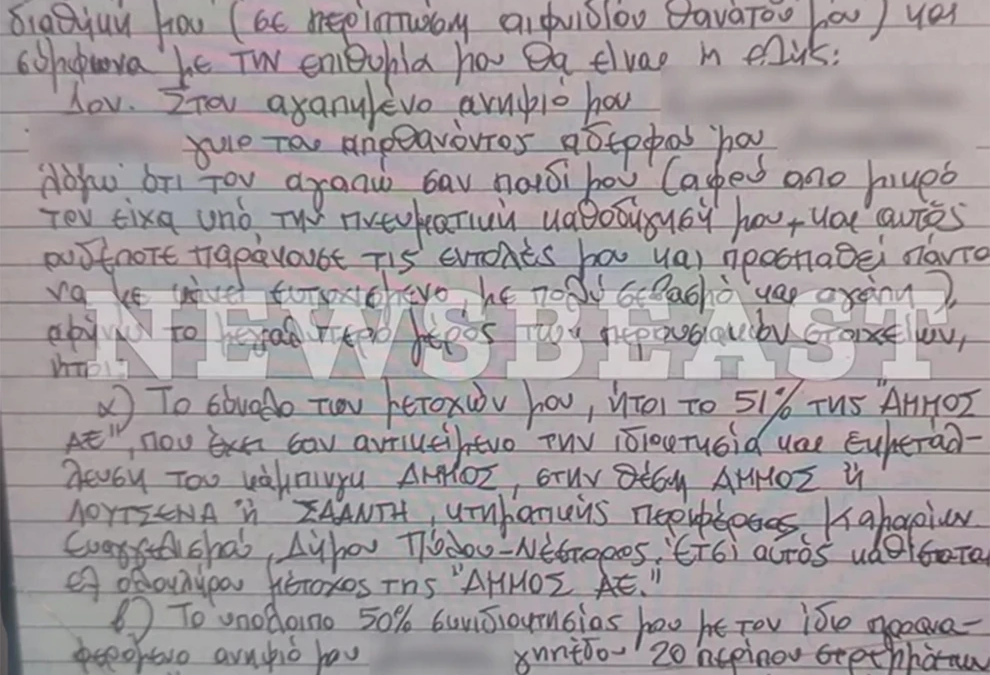 διαθήκη μου (σε περίπτωση αιφνιδίου θανάτου μου) και
σύμφωνα με την επιθυμία μου θα είναι η εξής:
1ον. Στον αγαπημένο ανηψιό μου
γυιο του αποθανόντος αδερφού μου
λόγω ότι τον αγαπώ σαν παιδί μου (αφού απο μικρό
τον είχα υπό την πνευματική καθοδήγησή μου, και αυτός
ουδέποτε παράκουσε τις εντολές μου και προσπαθεί πάντα
να με κάνει ευτυχισμένο, με πολύ σεβασμό και αγάπη),
αφήνω το μεγαλύτερο μέρος των περιουσιακών στοιχείων,
ήτοι:
NEWSBEAST
α) Το σύνολο των μετοχών μου, ήτοι το 51% της "ΑΜΜΟΣ
ΑΕ", που έχει σαν αντικείμενο την ιδιοκτησία και εκμετάλ-
λευση του κάμπινγκ ΑΜΜΟΣ, στην θέση ΑΜΜΟΣ ή
ΛΟΥΤΣΕΝΑ ή ΣΑΑΝΤΗ, κτηματικής περιφέρειας Καμαρίων
Ευαγγελισμού, Δήμου Πύλου-Νέστορος. Έτσι αυτός καθίσταται
εξ ολοκλήρου μέτοχος της "ΑΜΜΟΣ ΑΕ."
β) Το υπόλοιπο 50% συνιδιοκτησίας μου με τον ίδιο προανα-
φερόμενο ανηψιό μου γηπέδου 20 περίπου στρεμμάτων